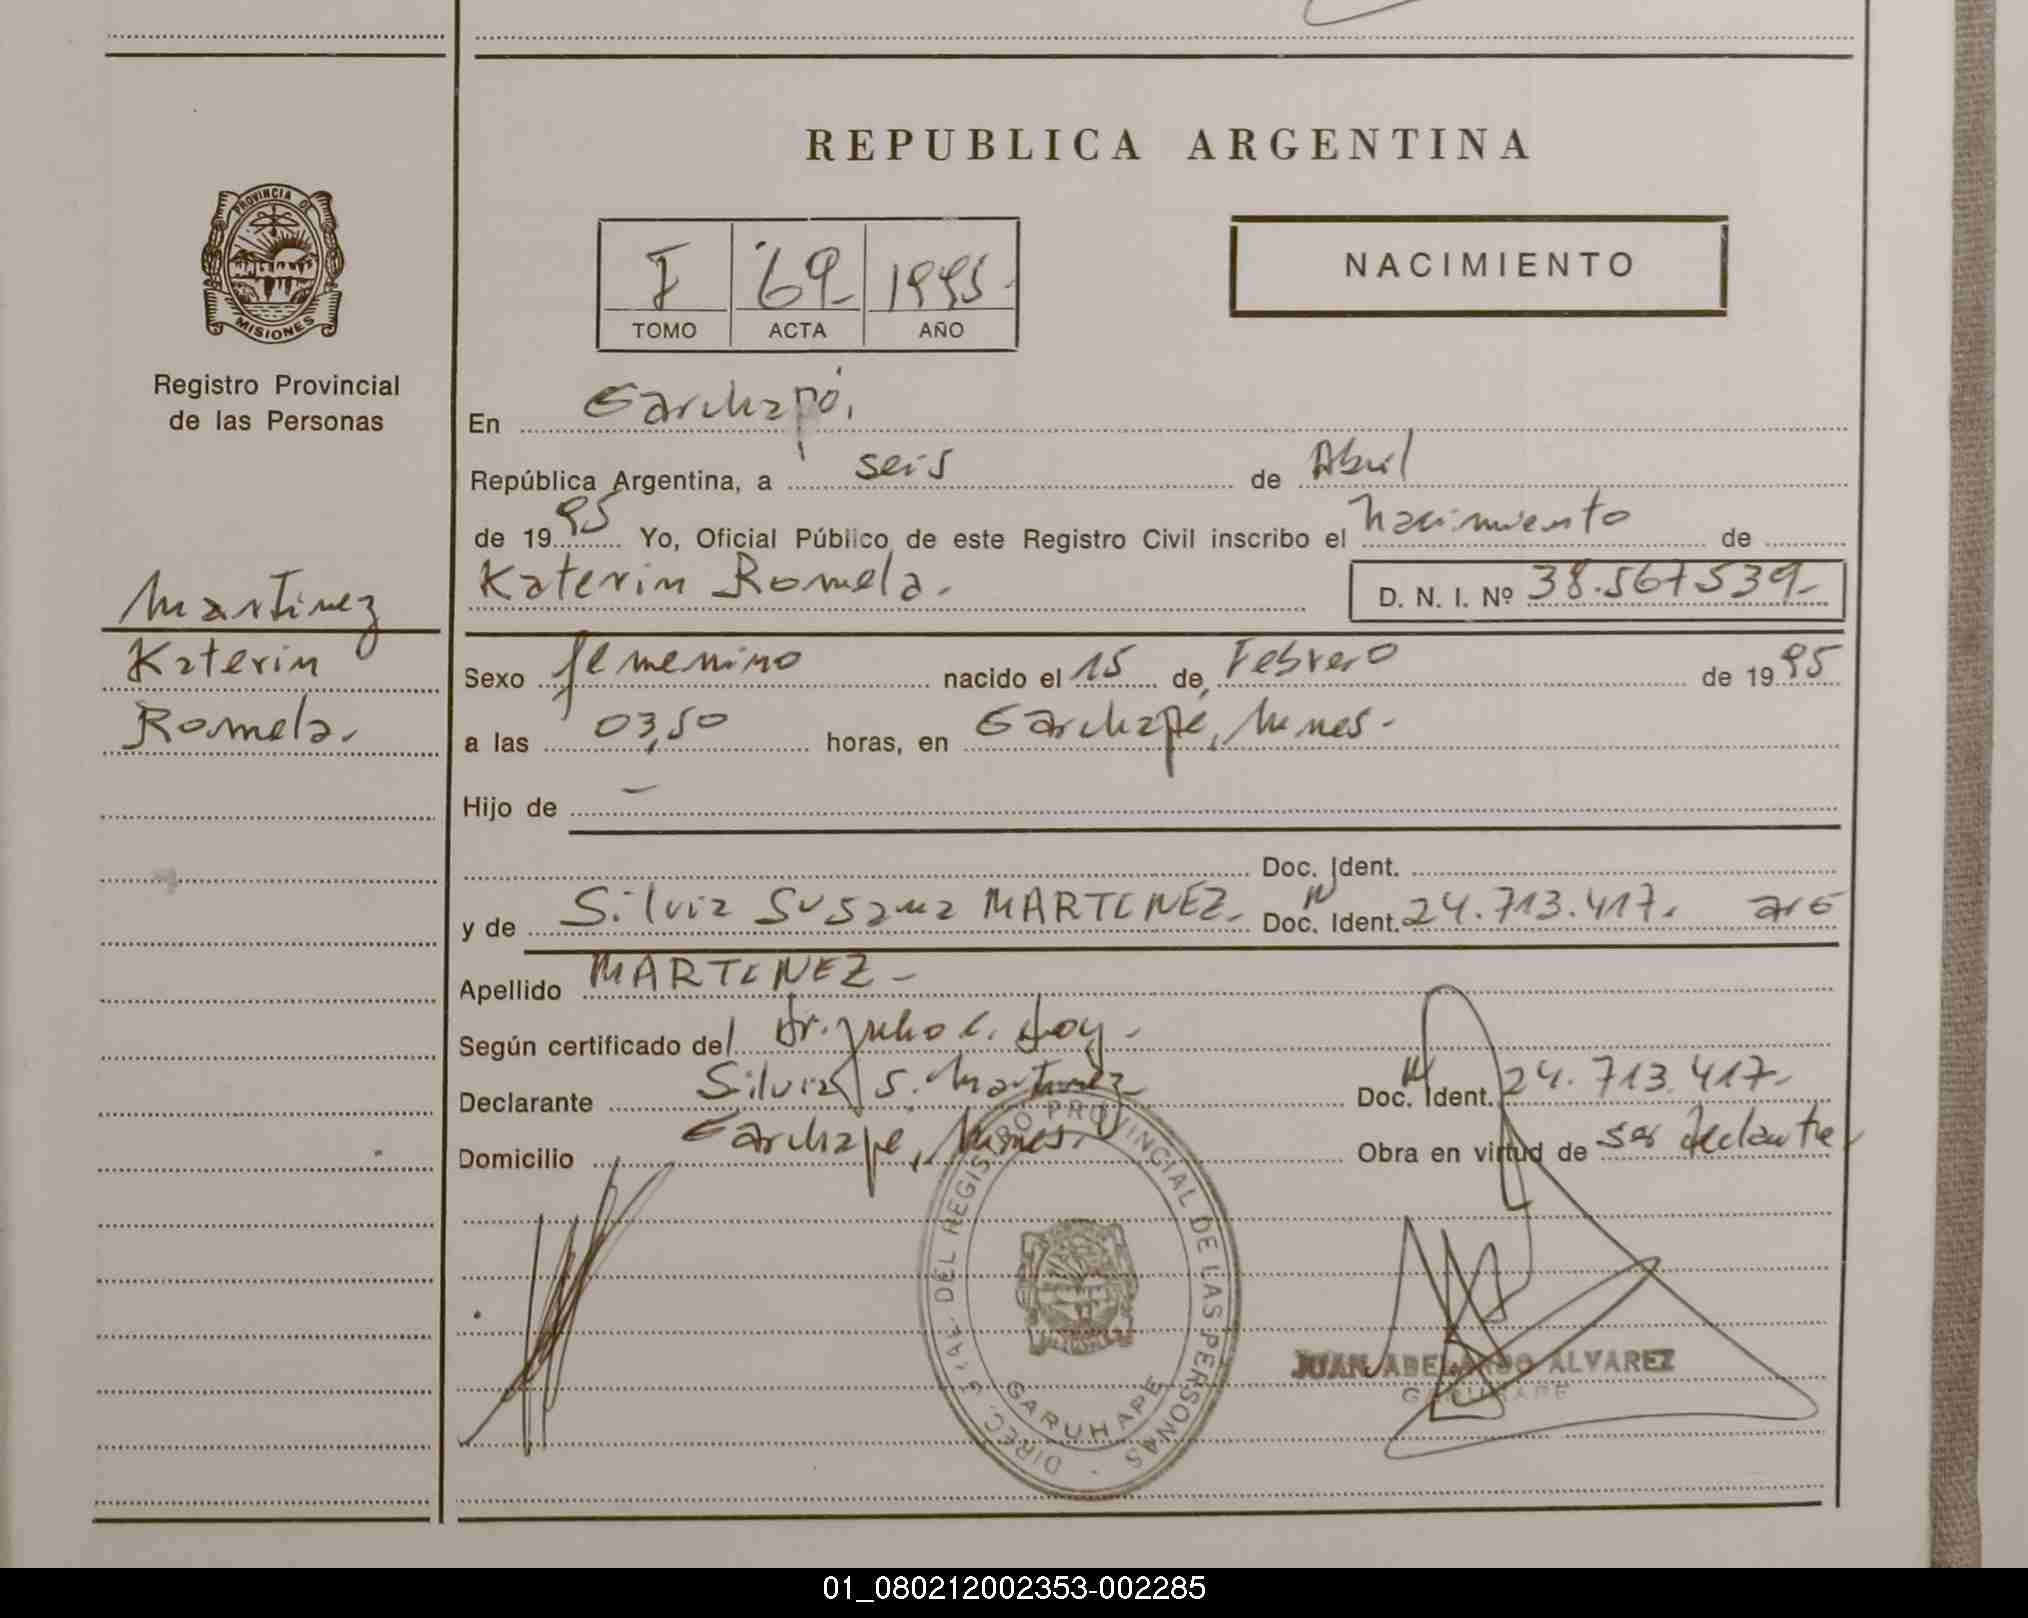 REPUBLICA ARGENTINA
PROVINCIA DE
MISIONES
Registro Provincial
de las Personas
I 69 1995
TOMO ACTA AÑO
NACIMIENTO
Martinez
Katerin
Romela.
En Garuhapé,
República Argentina, a seis de Abril
de 1995 Yo, Oficial Público de este Registro Civil inscribo el Nacimiento de
Katerin Romela. D. N. I. Nº 38.567539-
Sexo femenino nacido el 15 de Febrero de 1995
a las 03,50 horas, en Garuhapé, Mnes.-
Hijo de —
Doc. Ident.
y de Silvia Susana MARTINEZ- Doc. Ident. 24.713.417. arg
Apellido MARTINEZ-
Según certificado del Dr. Julio C.
Declarante Silvia S. Martinez Doc. Ident. 24.713.417-
Domicilio Garuhapé, Mnes. Obra en virtud de ser declarante
DIREC. GRAL. DEL REGISTRO PROVINCIAL DE LAS PERSONAS
GARUHAPE
JUAN ABELARDO ALVAREZ
GARUHAPE
01_080212002353-002285